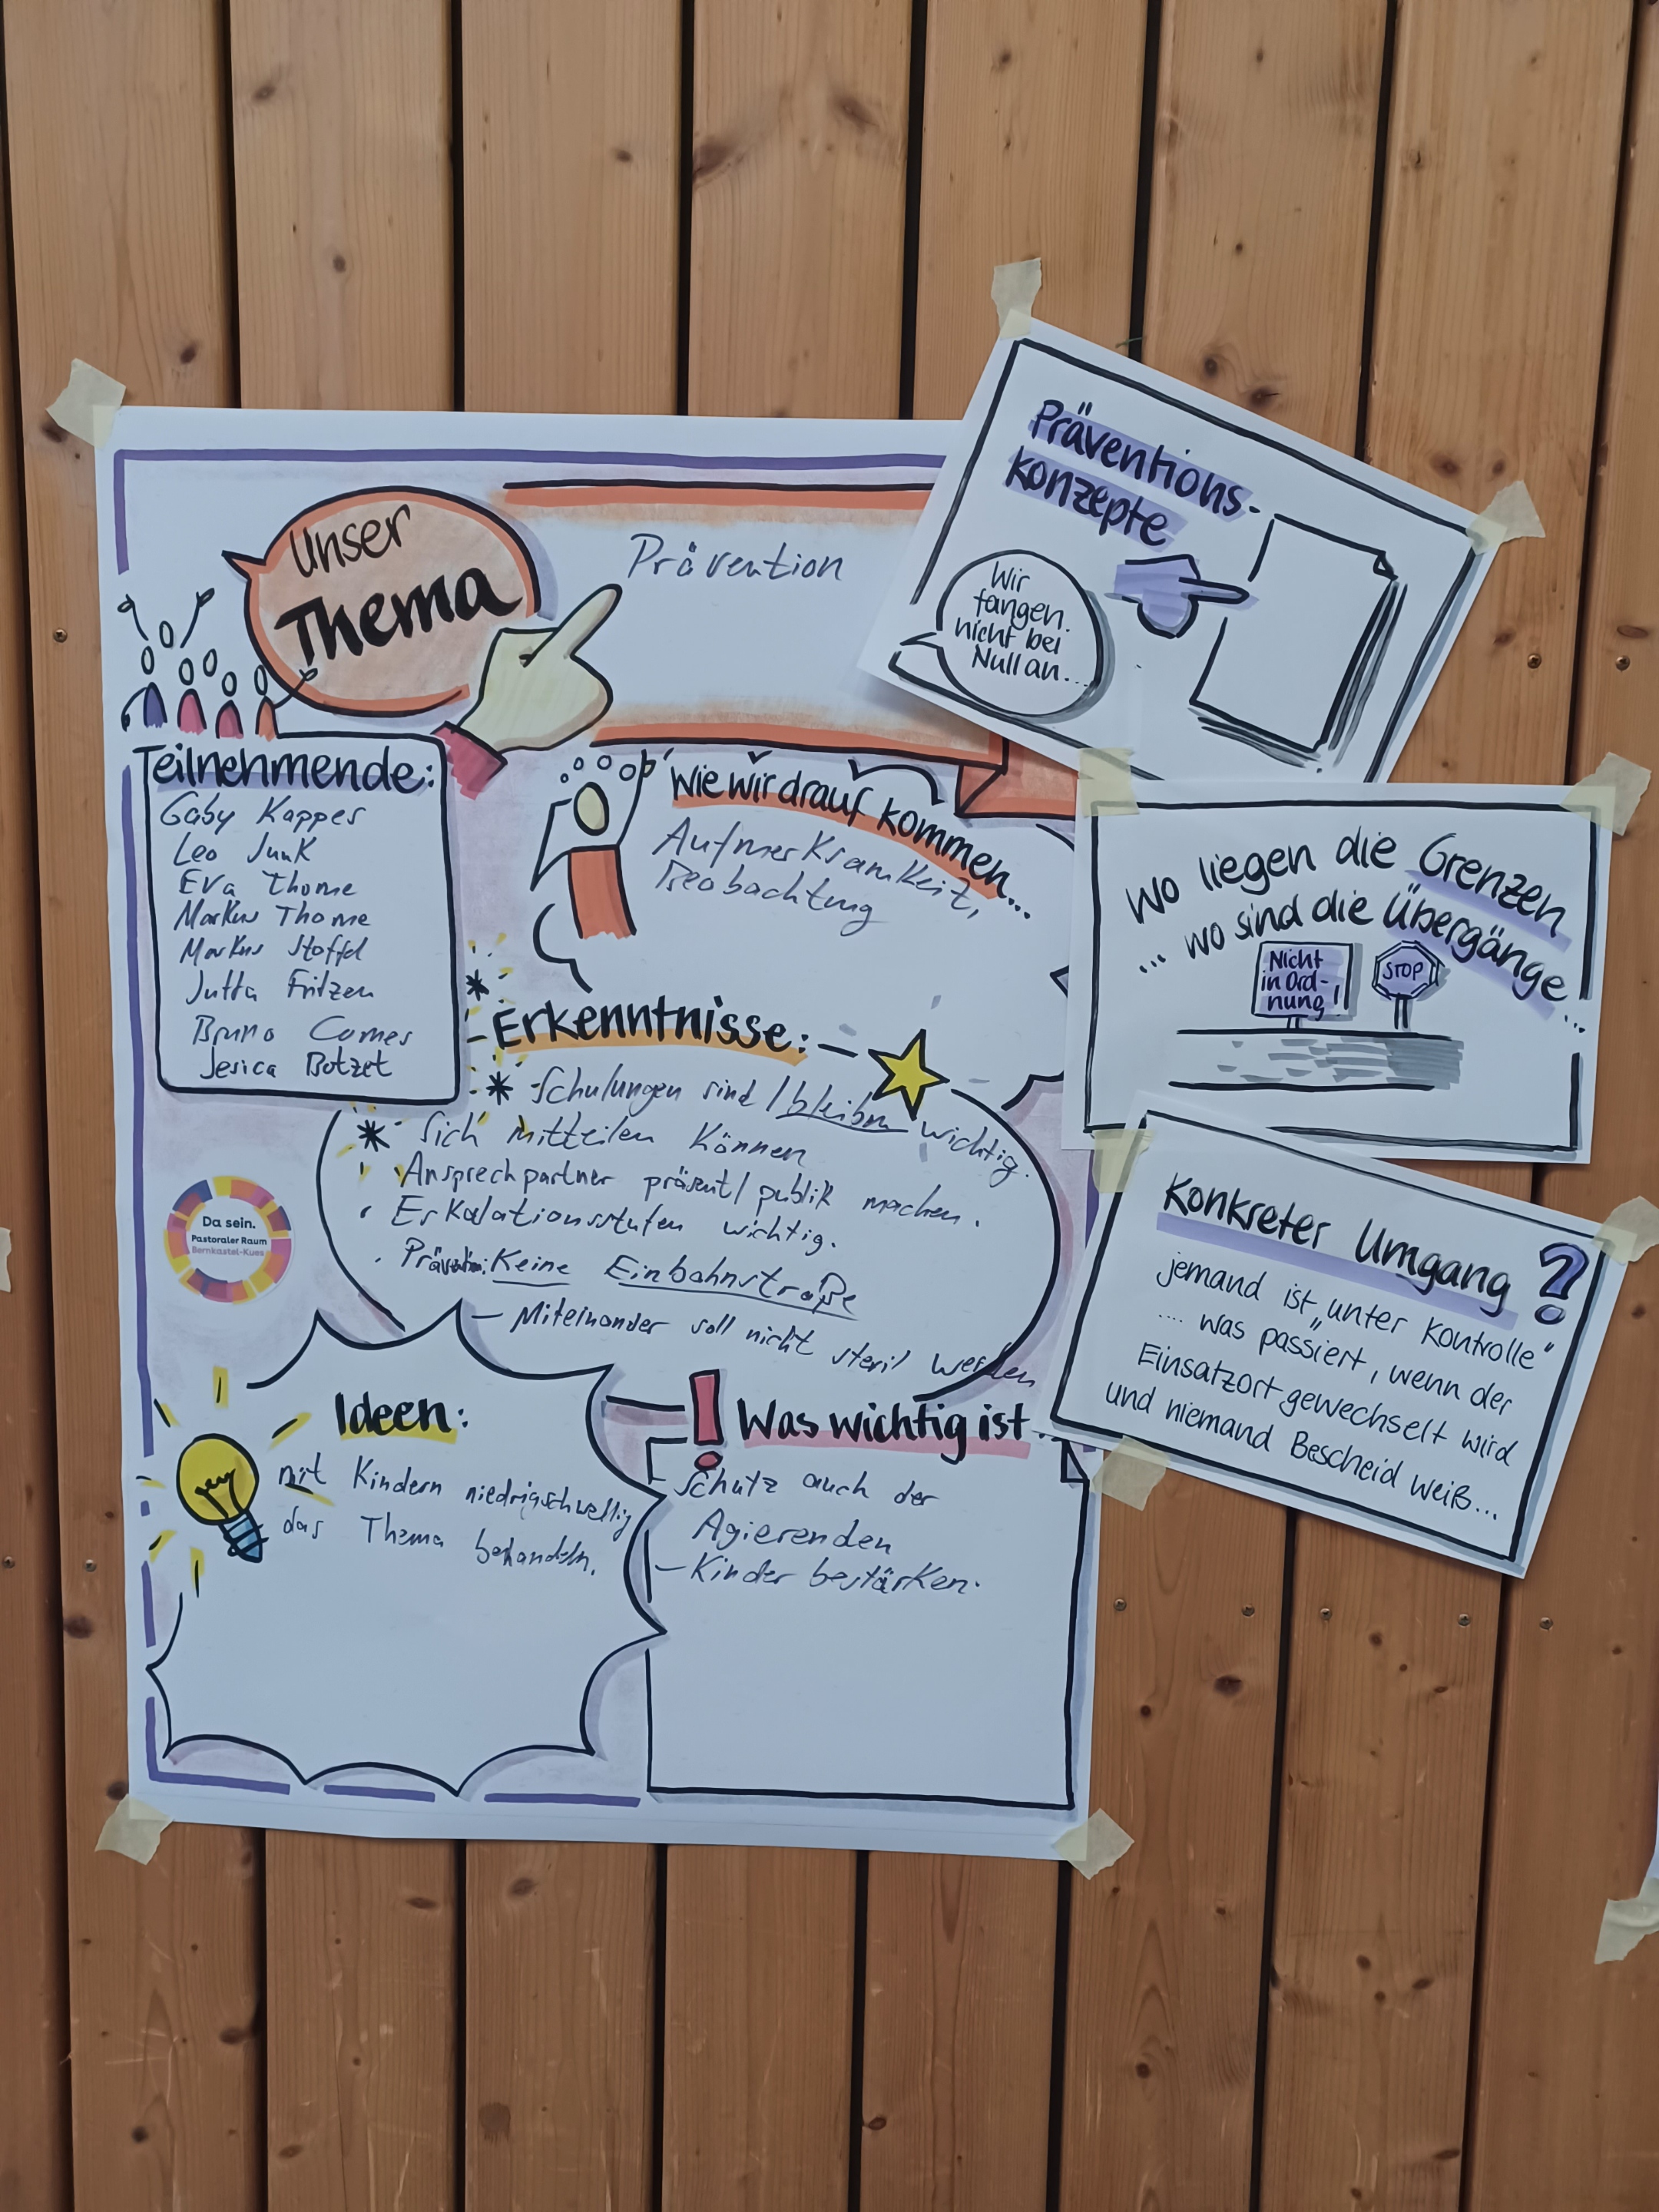 Unser
Thema
Prävention
Teilnehmende:
Gaby Kappes
Leo Junk
Eva Thome
Markus Thome
Markus Stoffel
Jutta Fritzen
Bruno Comes
Jesica Botzet
Wie wir drauf kommen...
Aufmerksamkeit,
Beobachtung
Erkenntnisse:
Schulungen sind / bleiben wichtig.
Sich mitteilen können
Ansprechpartner präsent / publik machen.
Eskalationsstufen wichtig.
Prävention: Keine Einbahnstraße
– Miteinander soll nicht steril werden
Da sein.
Pastoraler Raum
Bernkastel-Kues
Ideen:
mit Kindern niedrigschwellig
das Thema behandeln.
Was wichtig ist...
– Schutz auch der
Agierenden
– Kinder bestärken.
Präventions-
konzepte
Wir
fangen
nicht bei
Null an...
Wo liegen die Grenzen
... wo sind die Übergänge...
Nicht
in Ord-
nung!
STOP
Konkreter Umgang?
jemand ist „unter Kontrolle"
... was passiert, wenn der
Einsatzort gewechselt wird
und niemand Bescheid weiß...